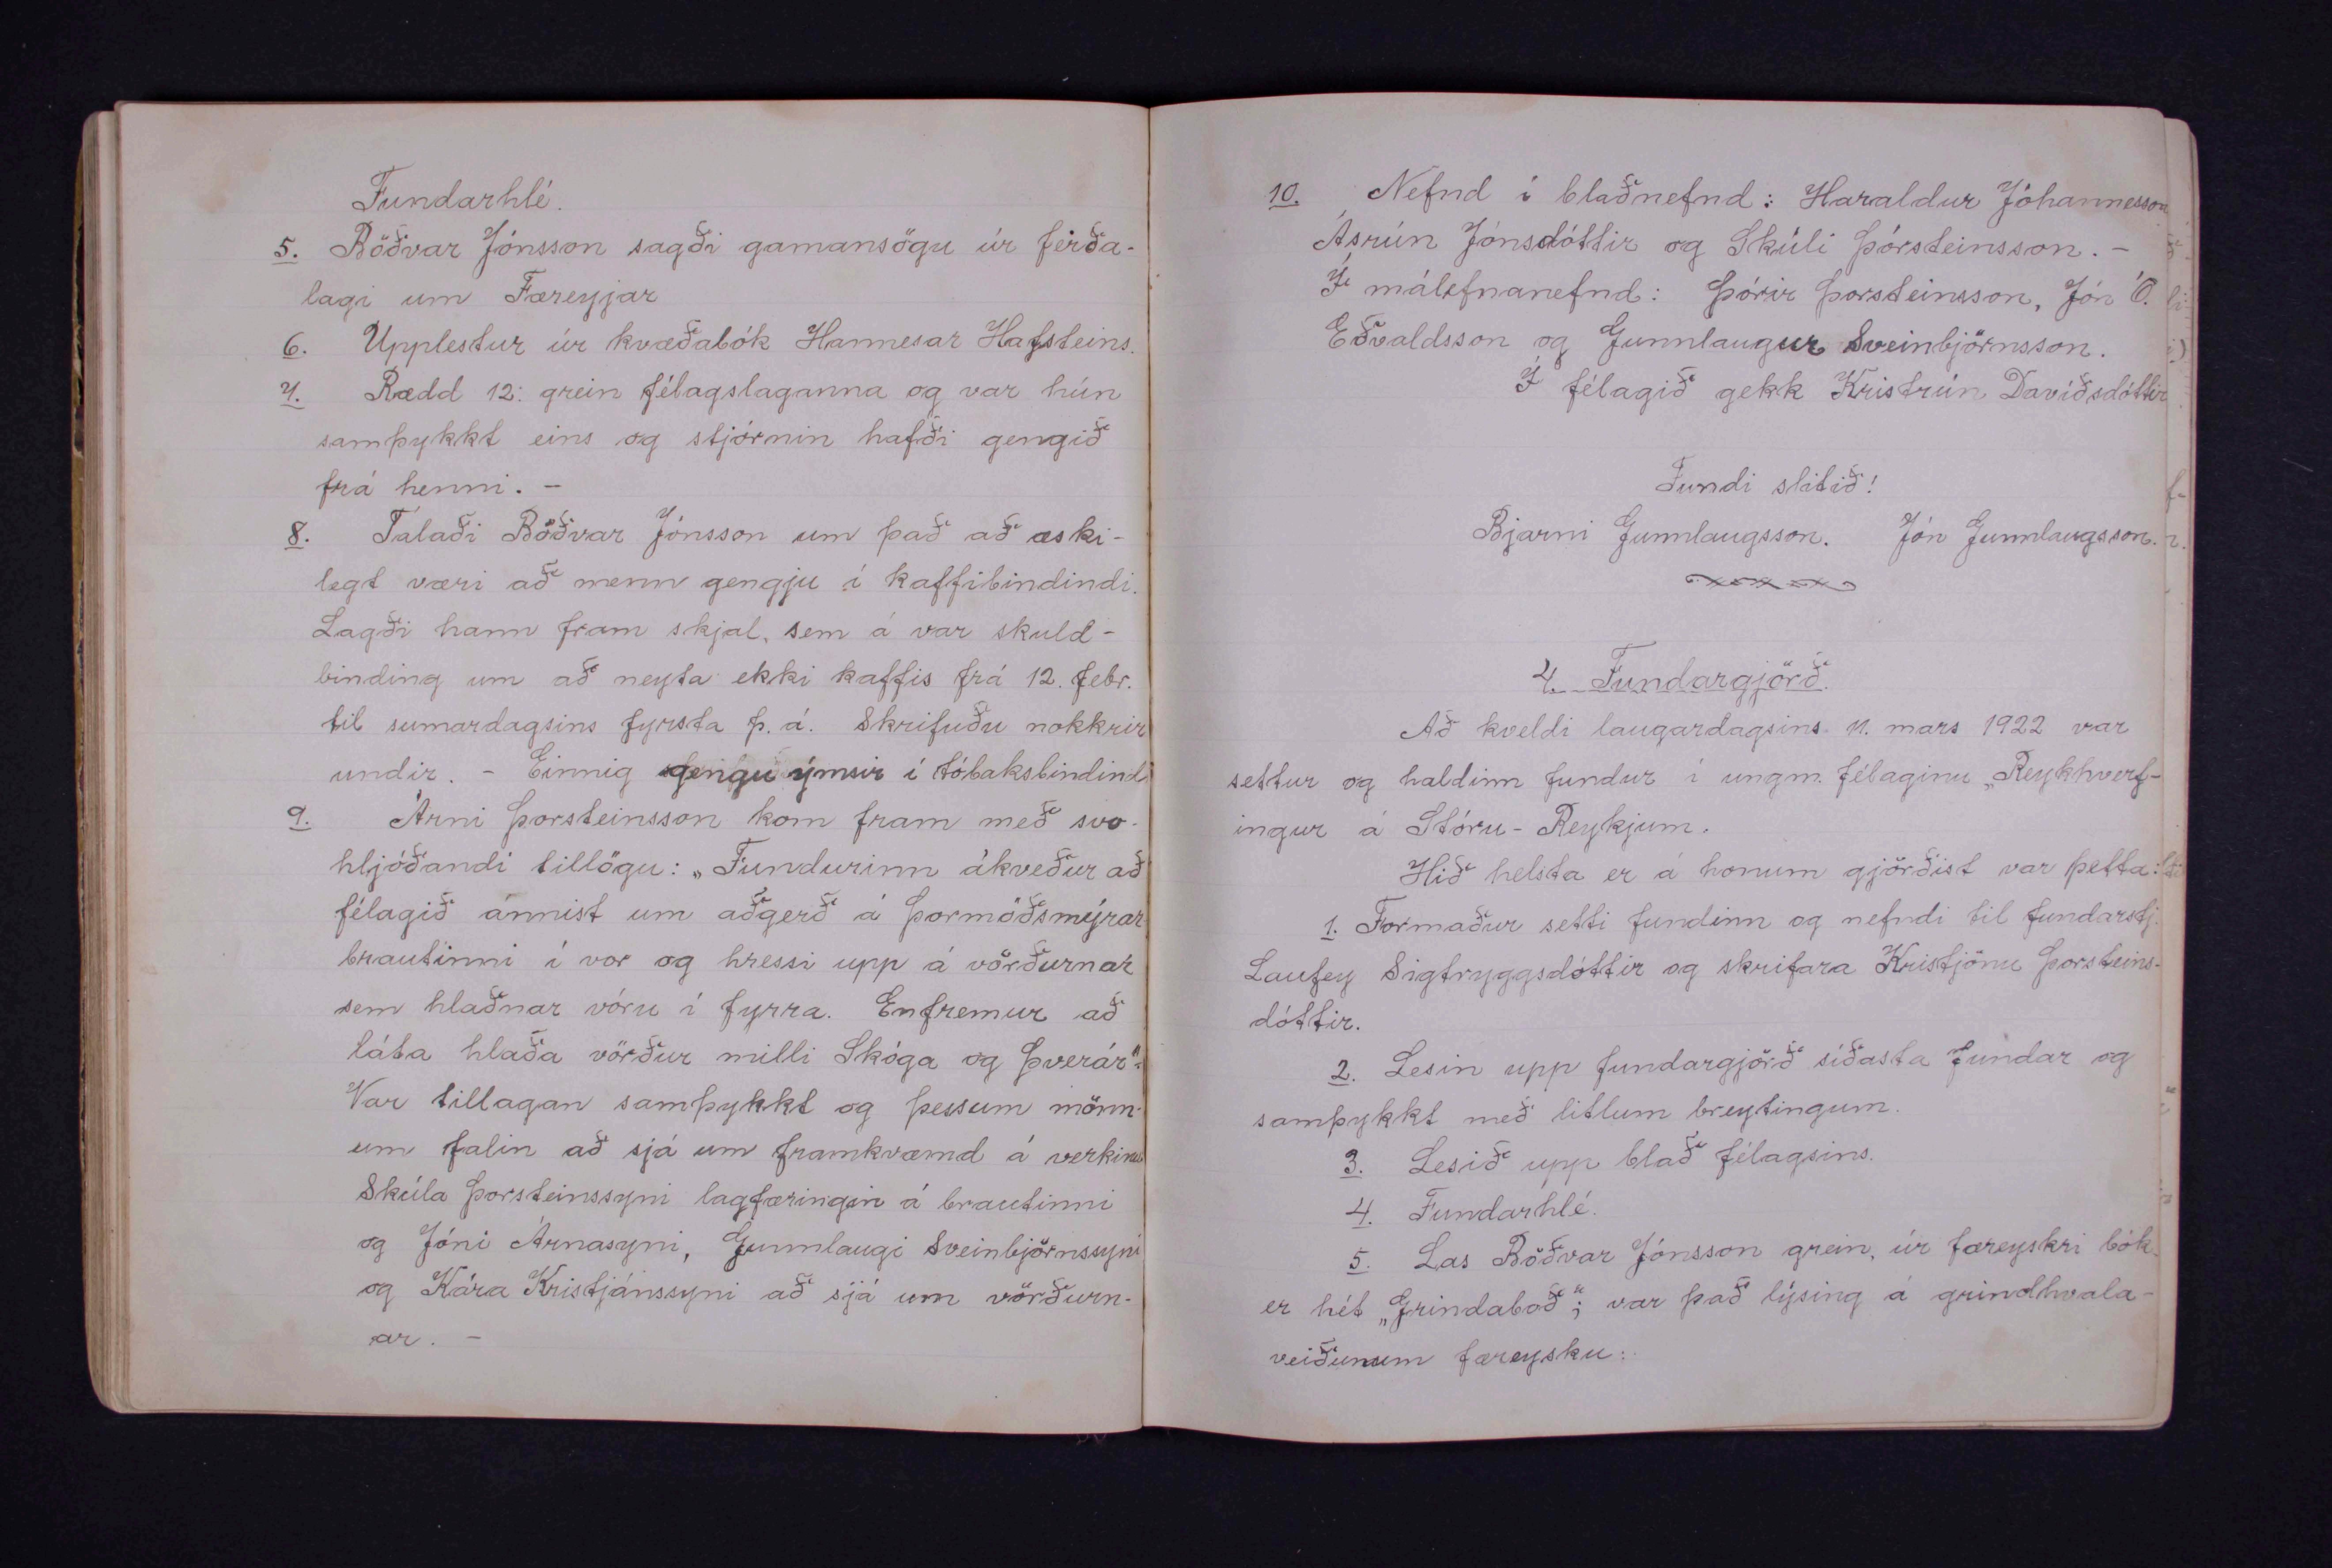 Fundarhlé.
5. Böðvar Jónsson sagði gamansögu úr ferða-
lagi um Færeyjar
6. Upplestur úr kvæðabók Hannesar Hafsteins.
7. Rædd 12: grein félagslaganna og var hún
samþykkt eins og stjórnin hafði gengið
frá henni. -
8. Talaði Böðvar Jónsson um það að æski-
legt væri að menn gengju í kaffibindindi.
Lagði hann fram skjal, sem á var skuld-
binding um að neyta ekki kaffis frá 12. febr.
til sumardagsins fyrsta þ. á. Skrifuðu nokkrir
undir. - Einnig gengu ýmsir í tóbaksbindindi
9. Árni Þorsteinsson kom fram með svo-
hljóðandi tillögu: „Fundurinn ákveður að
félagið annist um aðgerð á Þormóðsmýrar
brautinni í vor og hressi upp á vörðurnar
sem hlaðnar vóru í fyrra. Enfremur að
láta hlaða vörður milli Skóga og Þverár".
Var tillagan samþykkt og þessum mönn-
um falin að sjá um framkvæmd á verkinu
Skúla Þorsteinssyni lagfæringin á brautinni
og Jóni Árnasyni, Gunnlaugi Sveinbjörnssyni
og Kára Kristjánssyni að sjá um vörðurn-
ar. -
10. Nefnd í blaðnefnd: Haraldur Jóhannesson
Ásrún Jónsdóttir og Skúli Þórsteinsson. -
Í málefnanefnd: Þórir Þorsteinsson, Jón Ó.
Eðvaldsson og Gunnlaugur Sveinbjörnsson.
Í félagið gekk Kristrún Davíðsdóttir
Fundi slitið!
Bjarni Gunnlaugsson. Jón Gunnlaugsson.
4. Fundargjörð.
Að kveldi laugardagsins 11. mars 1922 var
settur og haldinn fundur í ungm. félaginu „Reykhverf-
ingur á Stóru-Reykjum.
Hið helsta er á honum gjörðist var þetta:
1. Formaður setti fundinn og nefndi til fundarstj.
Laufey Sigtryggsdóttir og skrifara Kristjönu Þorsteins-
dóttir.
2. Lesin upp fundargjörð síðasta fundar og
samþykkt með litlum breytingum.
3. Lesið upp blað félagsins.
4. Fundarhlé.
5. Las Böðvar Jónsson grein, úr færeyskri bók
er hét „Grindaboð"; var það lýsing á grindhvala-
veiðunum færeysku: